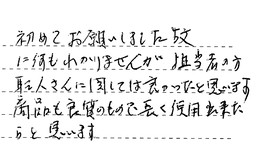 初めてお願いしました故
に何もわかりませんが 担当者の方
職人さんに関しては良かったと思います
商品も良質のもので長く使用出来た
らと思います